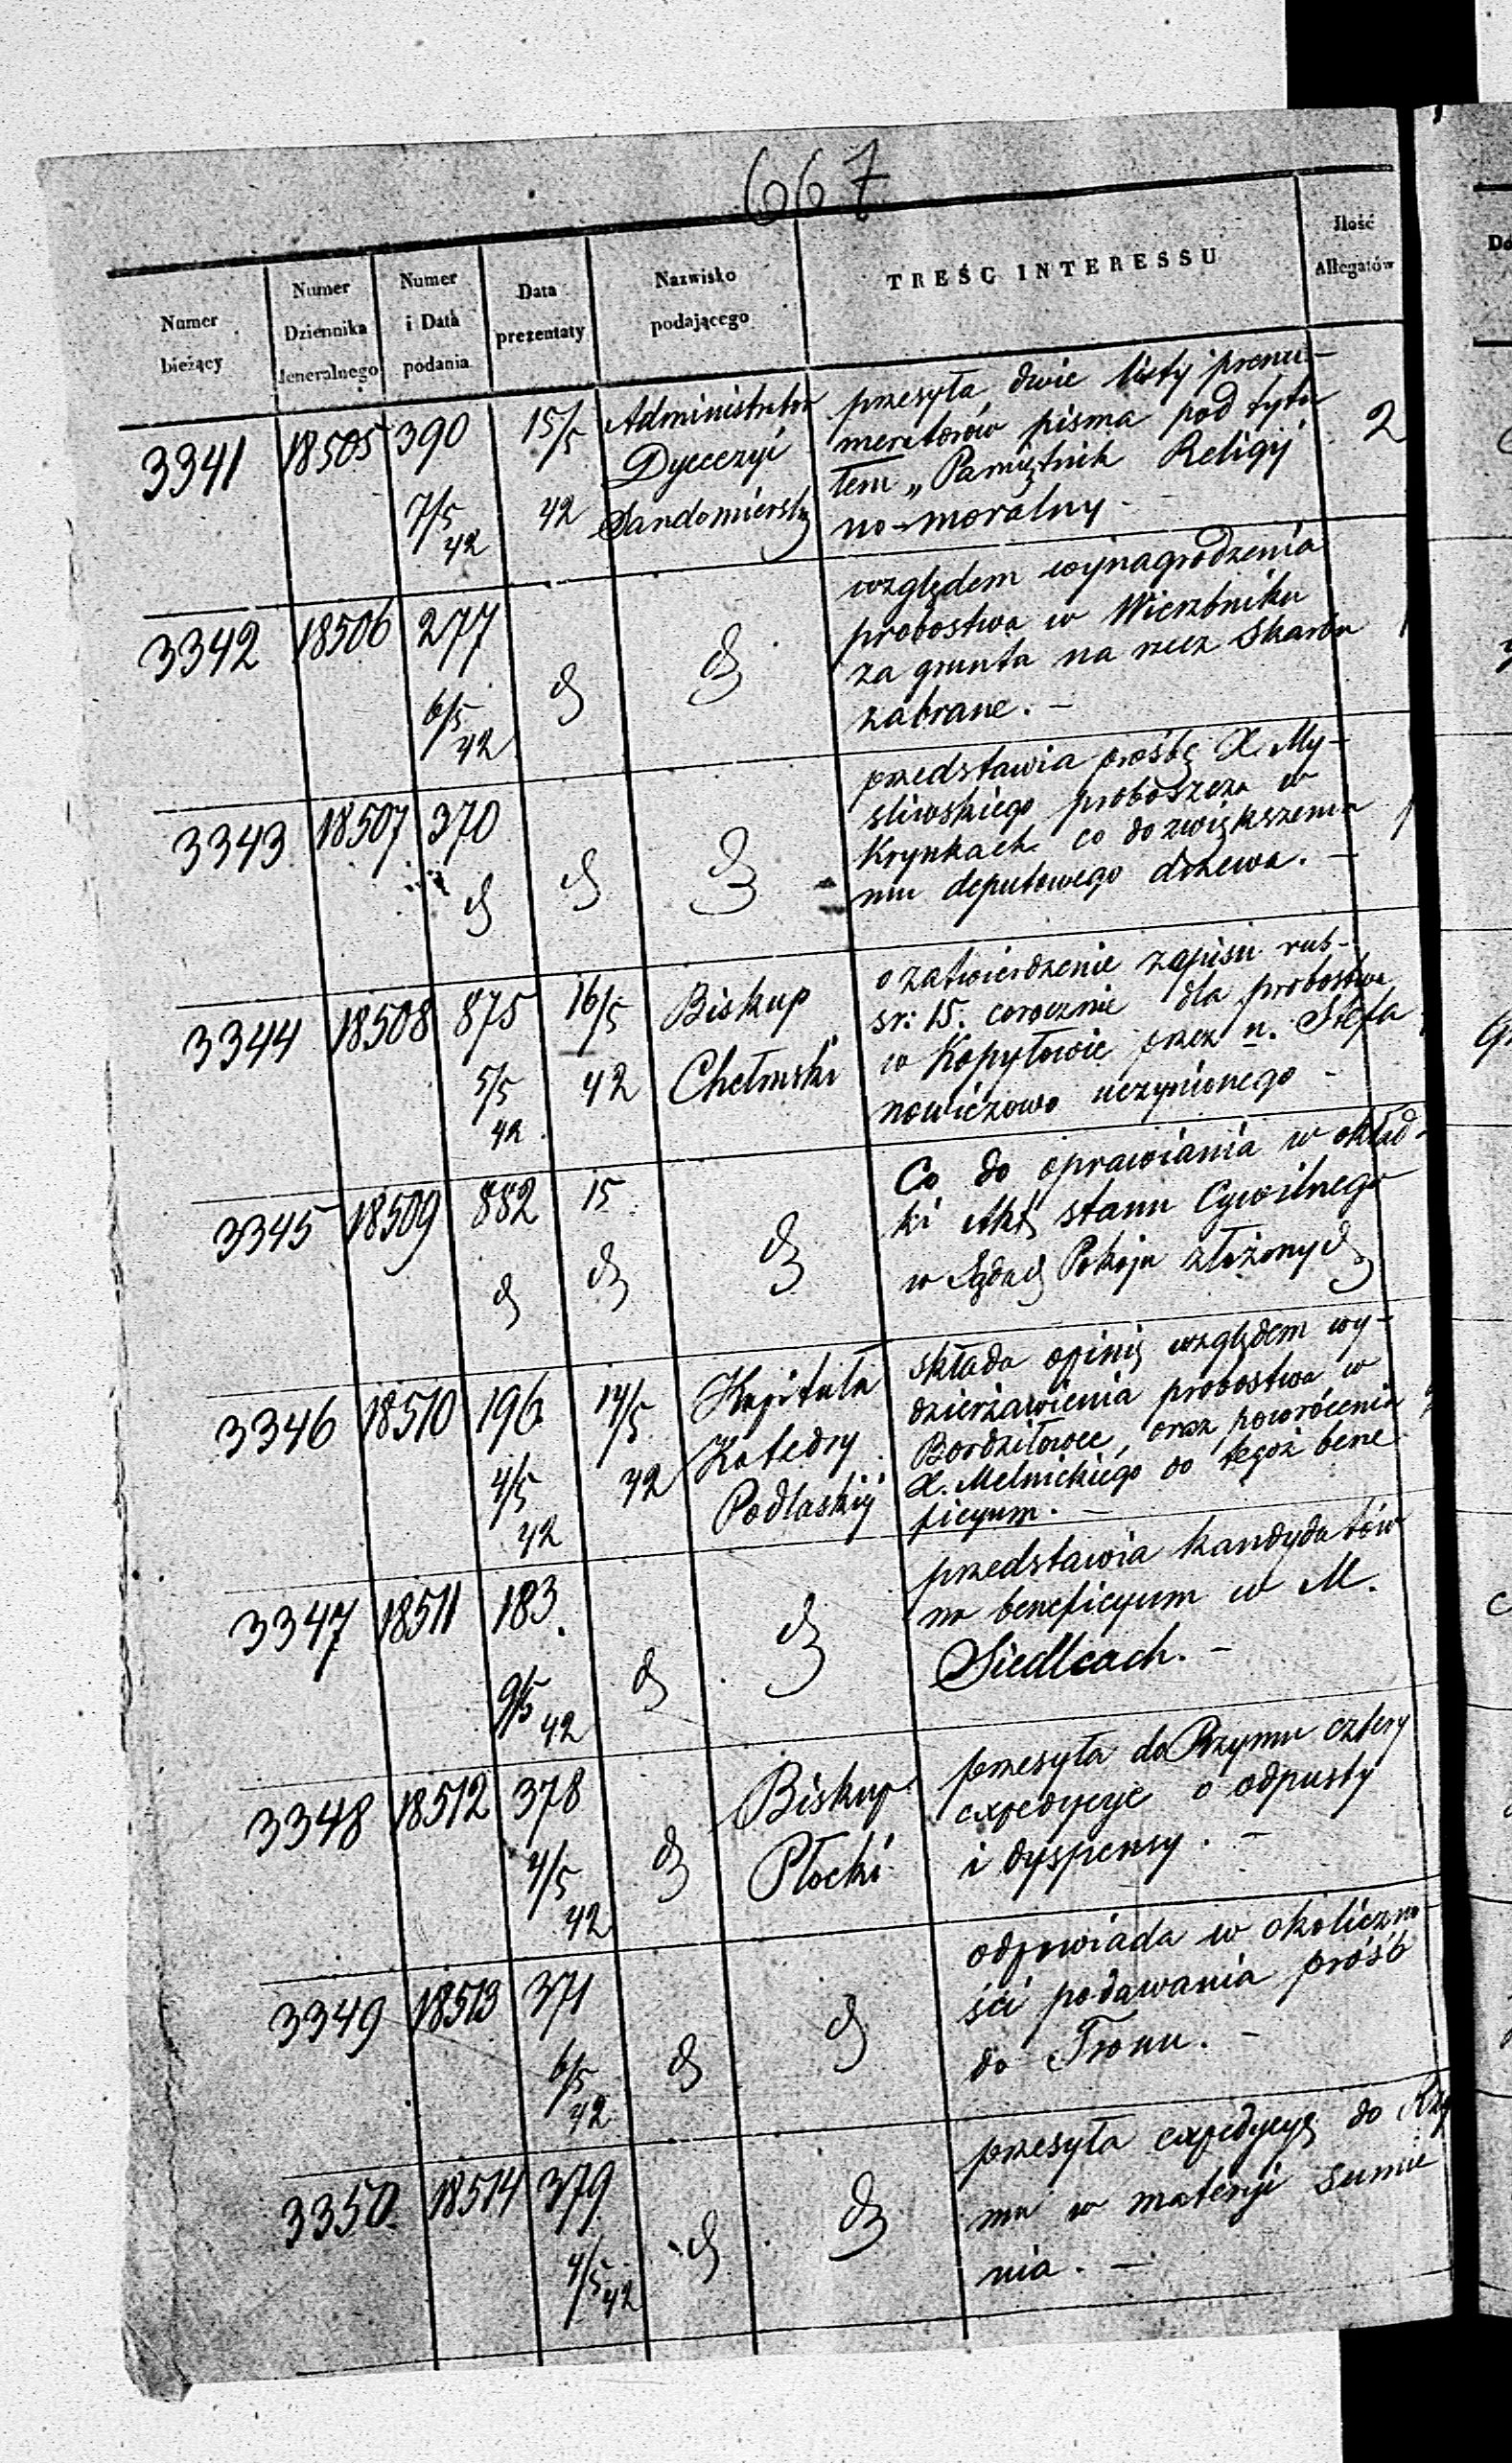 667
Numer bieżący
Numer Dziennika Jeneralnego
Numer i Data podania
Data prezentaty
Nazwisko podającego
TREŚĆ INTERESSU
Ilość Allegatów
3341 18505 390 7/5 42 15/5 42
Administrator
Dyecezyi
Sandomierski
przesyła dwie listy prenu-
meratorów pisma pod tytu
łem „Pamiętnik Religij
no-moralny -
2
3342 18506 277 6/5 42 d d
względem wynagrodzenia
probostwa w Wierzbniku
za grunta na rzecz Skarbu
zabrane. -
1
3343 18507 370 d d d
przedstawia prośbę X. My-
sliwskiego proboszcza w
Krynkach co do zwiększenia
mu deputowego drzewa. -
1
3344 18508 875 5/5 42 16/5 42
Biskup
Chełmski
o zatwierdzenie zapisu rub-
sr: 15. corocznie dla probostwa
w Kopyłowie przez n. Stefa
nowiczowo uczynionego -
3345 18509 882 d 15 d d
Co do oprawiania w okład-
ki Akt stanu Cywilnego
w Sądach Pokoju złożonych
3346 18510 196 4/5 42 14/5 42
Kapituła
Katedry
Podlaskiéj
składa opinię względem wy-
dzierżawienia probostwa w
Bordziłowce, oraz powrócenia
X. Melnickiego do tegoż bene
ficyum. -
3347 18511 183. 9/5 42 d d
przedstawia kandydatów
na beneficyum w M.
Siedlcach. -
3348 18512 378 4/5 42 d
Biskup
Płocki
przesyła do Rzymu cztery
expedycye o odpusty
i dyspensy. -
3349 18513 371 6/5 42 d d
odpowiada w okoliczno
ści podawania próśb
do Tronu. -
3350. 18514 379 4/5 42 d d
przesyła expedycyę do Rzy
mu w materyi sumie
nia. -